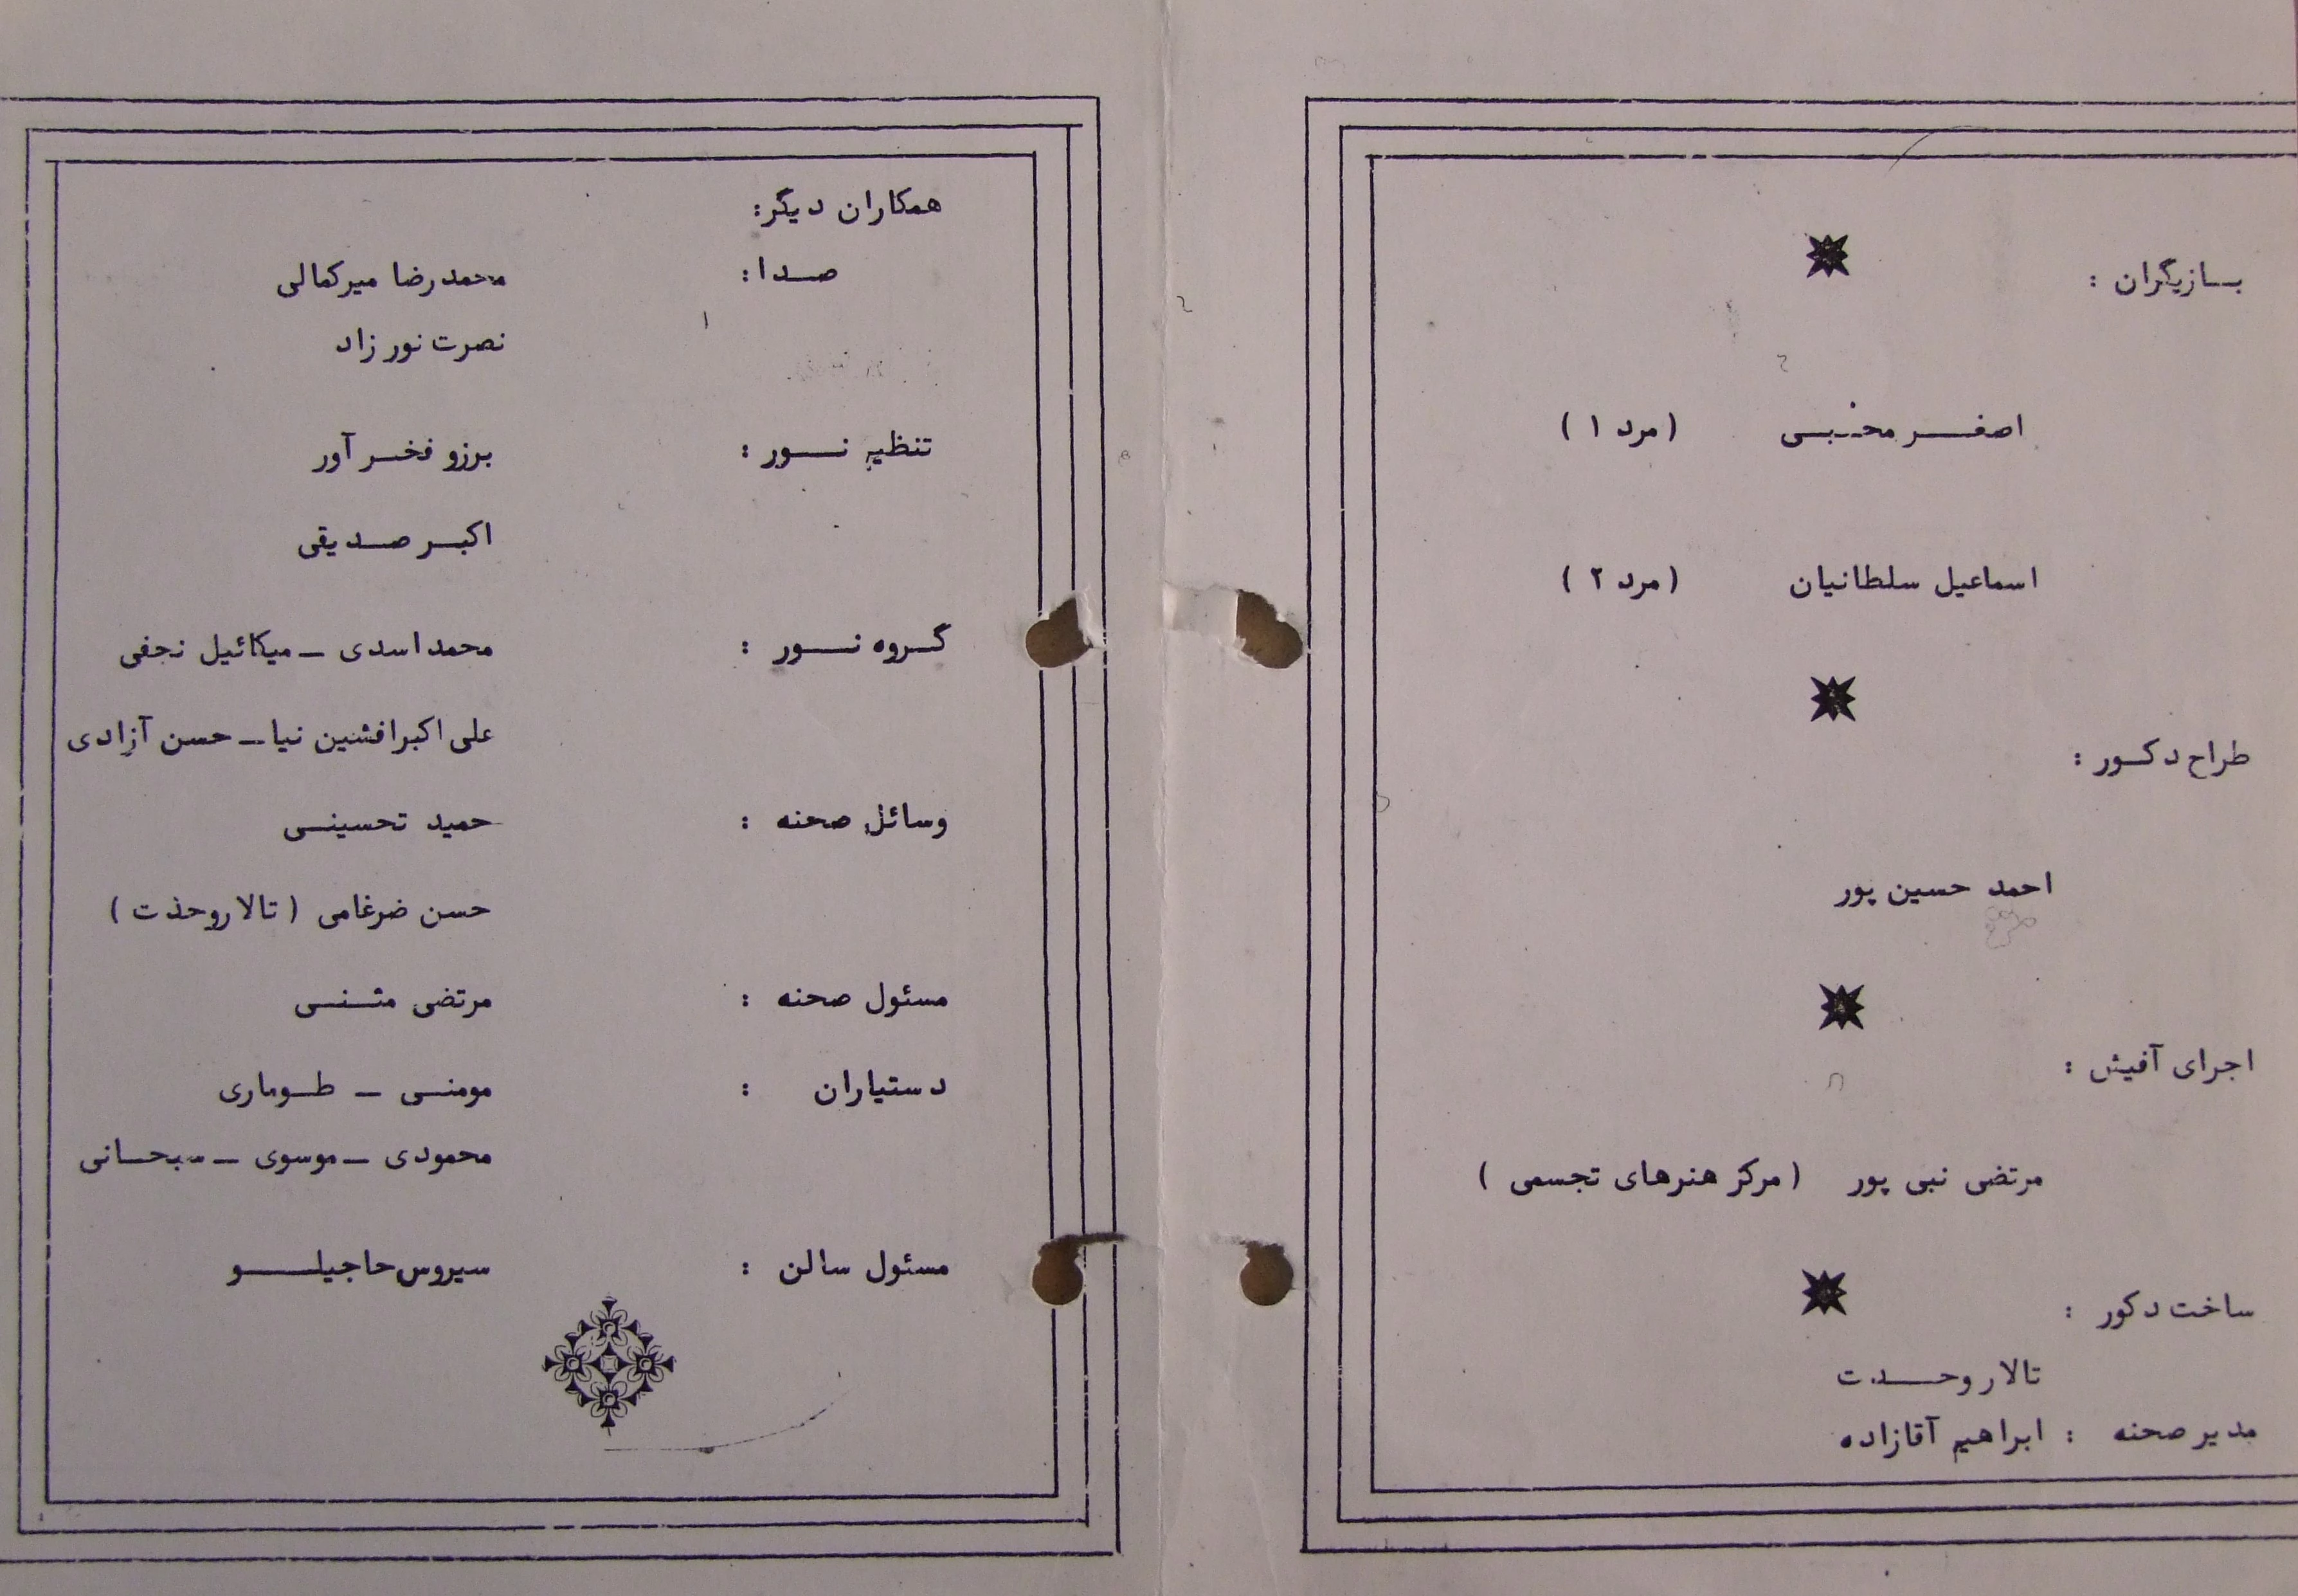 بازیگران :
اصغر محبی (مرد ۱)
اسماعیل سلطانیان (مرد ۲)
طراح دکور :
احمد حسین پور
اجرای آفیش :
مرتضی نبی پور (مرکز هنرهای تجسمی)
ساخت دکور :
تالار وحدت
مدیر صحنه : ابراهیم آقازاده
همکاران دیگر:
صدا: محمدرضا میرکمالی
نصرت نور زاد
تنظیم نور : برزو فخر آور
اکبر صدیقی
گروه نور : محمد اسدی - میکائیل نجفی
علی اکبر افشین نیا - حسن آزادی
وسائل صحنه : حمید تحسینی
حسن ضرغامی (تالار وحدت)
مسئول صحنه : مرتضی مثنی
دستیاران : مومنی - طوماری
محمودی - موسوی - سبحانی
مسئول سالن : سیروس حاجیلو